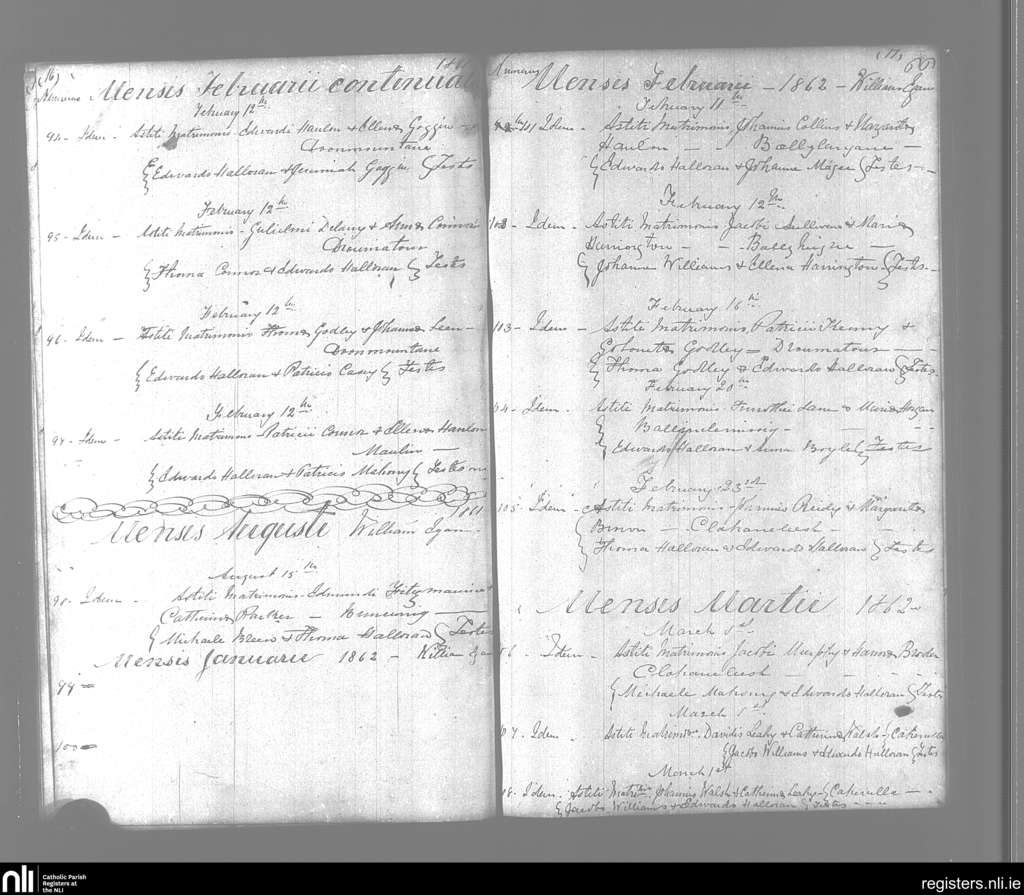 (16)
Numerus Mensis Februarii continuat
February 12th
94 - Idem - Astiti Matrimonio Edwardi Hanlon & Ellena Goggin
Droonmountane
Edwardo Halloran & Jeremiah Goggin Testes
February 12th
95 - Idem - Astiti Matrimonio - Gulielmi Delany & Anna Connor
Droumatour
Thoma Connor & Edwardo Halloran Testes
February 12th
96 - Idem - Astiti Matrimonio Thoma Godley & Johanna Leen -
Droonmountane
Edwardo Halloran & Patricio Casey Testes
February 12th
97 - Idem - Astiti Matrimonio Patricii Connor & Ellena Hanlon
Maulin
Edwardo Halloran & Patricio Mahony Testes
1861
Mensis Augusti William Egan
August 15th
98 - Idem - Astiti Matrimonio Edmundi Fitzmaurice
Catherina Parker -
Michaele Breen & Thoma Halloran Testes
Mensis Januarii 1862 - William Egan
99 =
100 =
(17)
Numerus Mensis Februarii - 1862 - William Egan
February 11th
101 Idem - Astiti Matrimonio Johannis Collins & Margarita
Hanlon - -
Edwardo Halloran & Johanne Magee Testes -
February 12th
102 - Idem - Astiti Matrimonio Jacobi Sullivan & Maria
Harrington - - Ballyheigue -
Johanne Williams & Ellena Harrington Testes -
February 16th
103 - Idem - Astiti Matrimonio Patricii Kenny &
Godley = Droumatour -
Thoma Godley & Edwardo Halloran Testes -
February 20th
104 - Idem - Astiti Matrimonio Timothii Lane & Maria Horgan
Edwardo Halloran & Anna Boyle Testes
February 23rd
105 - Idem - Astiti Matrimonio Reidy & Margarita
- Clahaneleesh -
Thoma Halloran & Edwardo Halloran Testes
Mensis Martii 1862
March
106 - Idem - Astiti Matrimonio Jacobi Murphy & Hanna Broder
Clahaneleesh
Michaele Mahony & Edwardo Halloran Testes
March 1st
107 - Idem - Astiti Matrimo. Davidis Leahy & Catherina Walsh -
Jacobo Williams & Edwardo Halloran Testes
March 1st
108 - Idem - Astiti Johannis Walsh & Catherina Leahy -
Jacobo Williams & Edwardo Halloran Testes
nli
Catholic Parish
Registers at
the NLI
registers.nli.ie